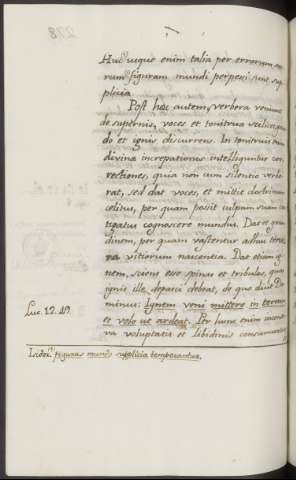 Huc usque enim talia per errorum suo-
rum figuram mundi perpessi sunt sup-
plicia
Post hæc autem verbera veniunt
de supernis, voces et tonitrua scilicet, gran-
do et ignis discurrens. In tonitruis enim
divinæ increpationis intelliguntur cor-
rectiones, quia non cum silentio verbe-
rat, sed dat voces, et mittit doctrinam
cælitus, per quam possit culpam suam cas-
tigatus cognoscere mundus. Dat et gran-
dinem, per quam vastentur adhuc tene-
ra vitiorum nascentia. Dat etiam ig-
nem, sciens esse spinas et tribulos, quas
ignis ille depasci debeat, de quo dicit Do-
minus: Ignem veni mittere in terram
Luc. 12. 49.
et volo ut ardeat. Per hunc enim incenti-
va voluptatis et libidinis consumuntur
figuras mundi supplicia temperantur